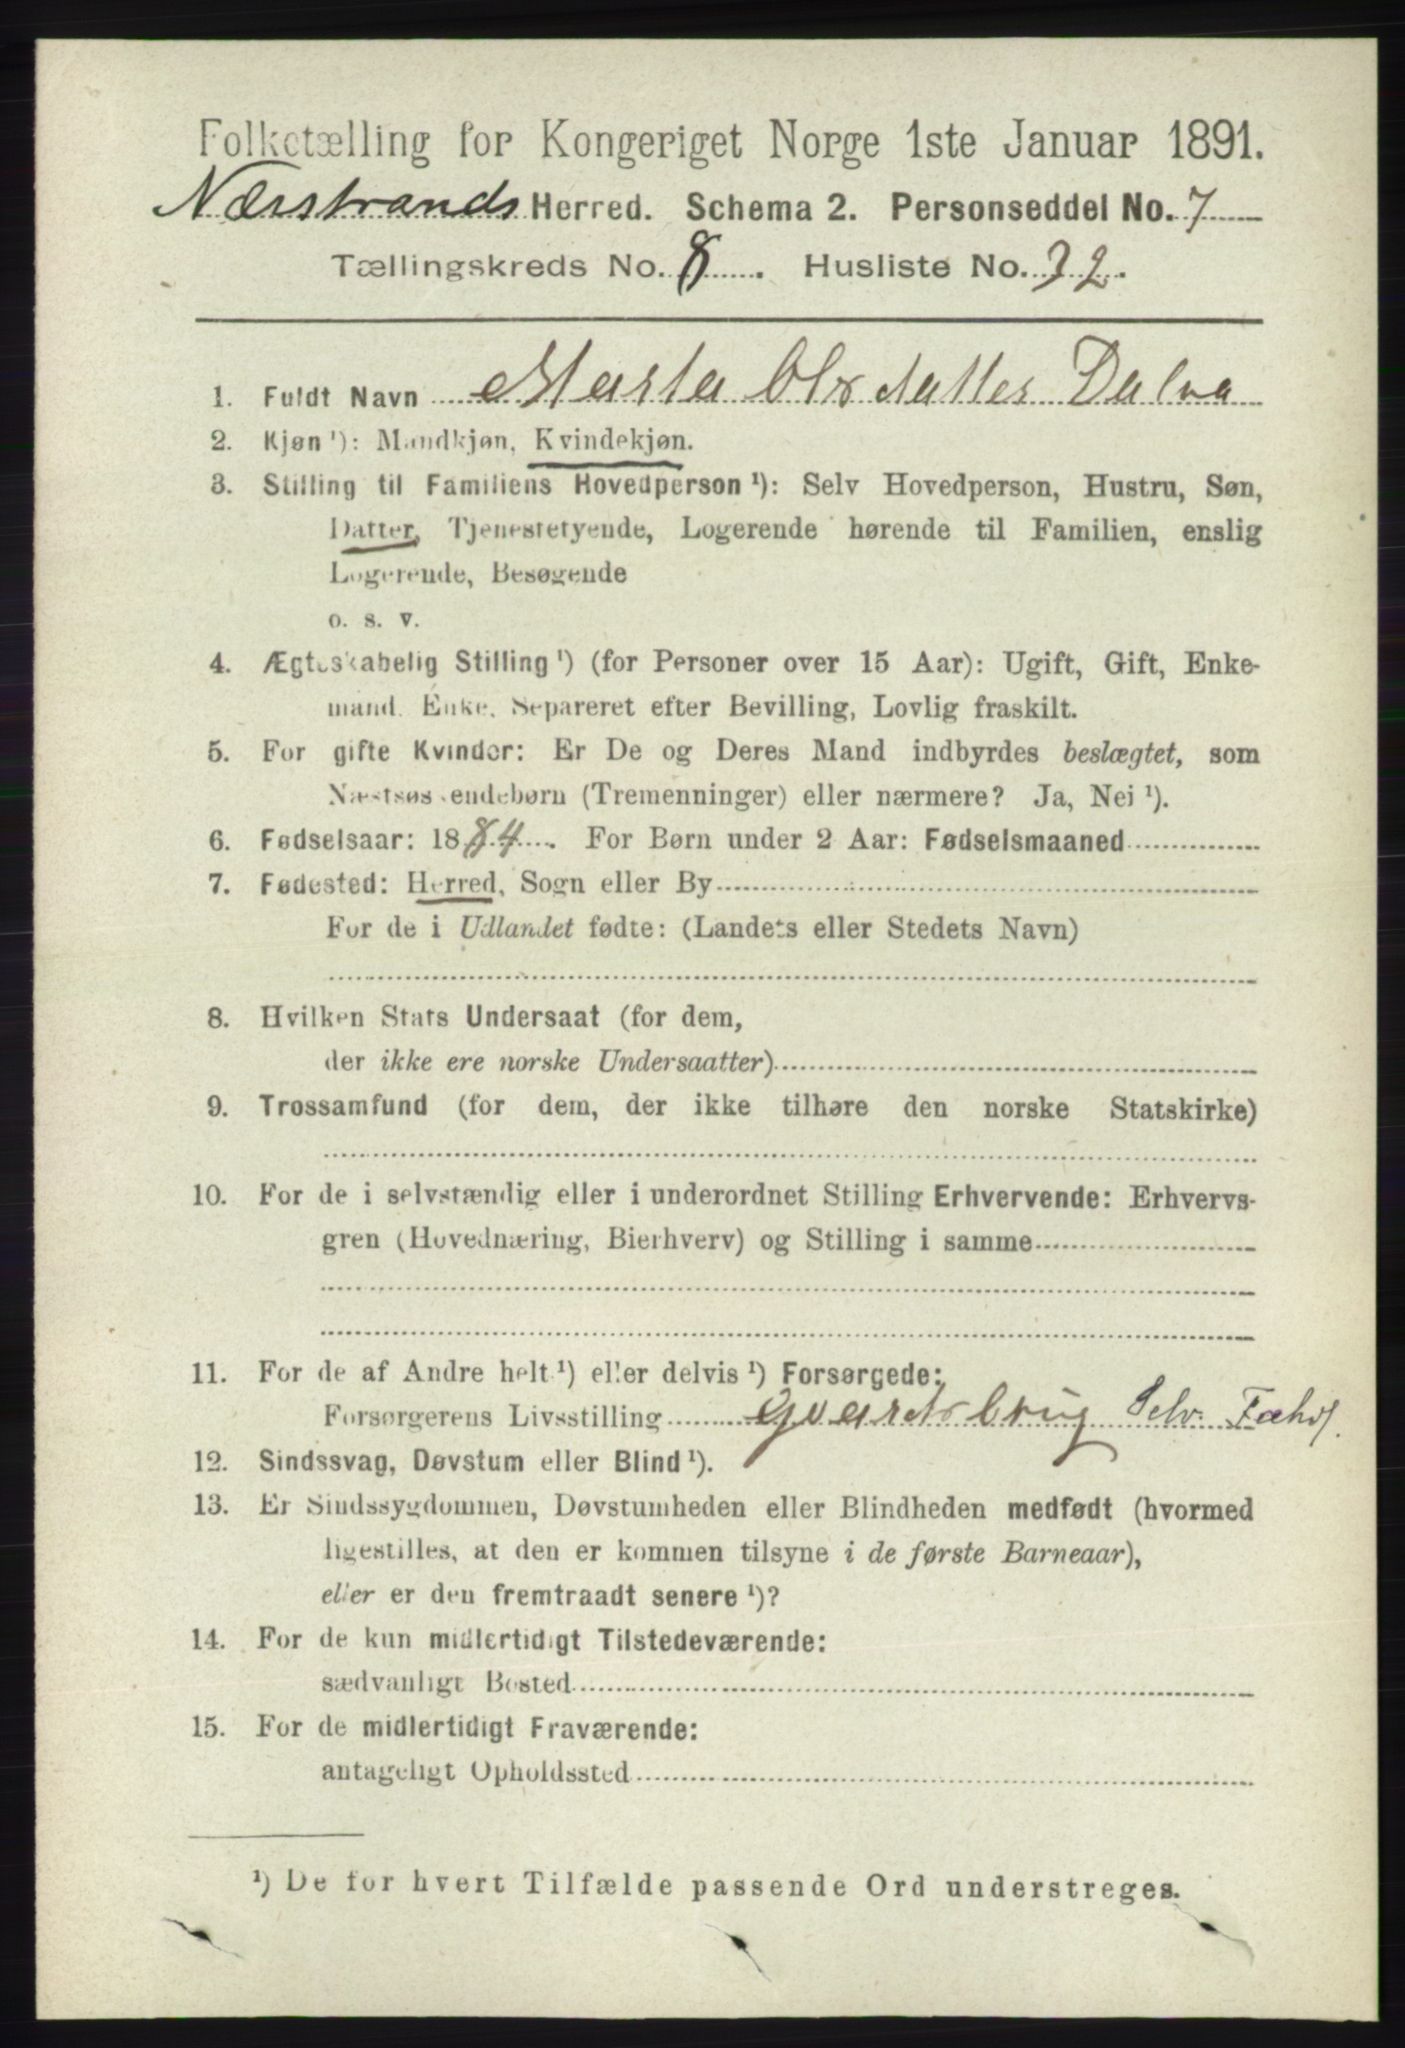 Folketælling for Kongeriget Norge 1ste Januar 1891.
Nærstrands Herred. Schema 2. Personseddel No. 7
Tællingskreds No. 8. Husliste No. 32.
1. Fuldt Navn Marta Olsdatter Dalva
2. Kjøn ¹): Mandkjøn, Kvindekjøn.
3. Stilling til Familiens Hovedperson ¹): Selv Hovedperson, Hustru, Søn,
Datter, Tjenestetyende, Logerende hørende til Familien, enslig
Logerende, Besøgende
o. s. v.
4. Ægteskabelig Stilling ¹) (for Personer over 15 Aar): Ugift, Gift, Enke-
mand, Enke, Separeret efter Bevilling, Lovlig fraskilt.
5. For gifte Kvinder: Er De og Deres Mand indbyrdes beslægtet, som
Næstsøskendebørn (Tremenninger) eller nærmere? Ja, Nei ¹).
6. Fødselsaar: 1884. For Børn under 2 Aar: Fødselsmaaned
7. Fødested: Herred, Sogn eller By
For de i Udlandet fødte: (Landets eller Stedets Navn)
8. Hvilken Stats Undersaat (for dem,
der ikke ere norske Undersaatter)
9. Trossamfund (for dem, der ikke tilhøre den norske Statskirke)
10. For de i selvstændig eller i underordnet Stilling Erhvervende: Erhvervs-
gren (Hovednæring, Bierhverv) og Stilling i samme
11. For de af Andre helt ¹) eller delvis ¹) Forsørgede:
Forsørgerens Livsstilling Gaardsbrug Selv.
12. Sindssvag, Døvstum eller Blind ¹).
13. Er Sindssygdommen, Døvstumheden eller Blindheden medfødt (hvormed
ligestilles, at den er kommen tilsyne i de første Barneaar),
eller er den fremtraadt senere ¹)?
14. For de kun midlertidigt Tilstedeværende:
sædvanligt Bosted
15. For de midlertidigt Fraværende:
antageligt Opholdssted
¹) De for hvert Tilfælde passende Ord understreges.